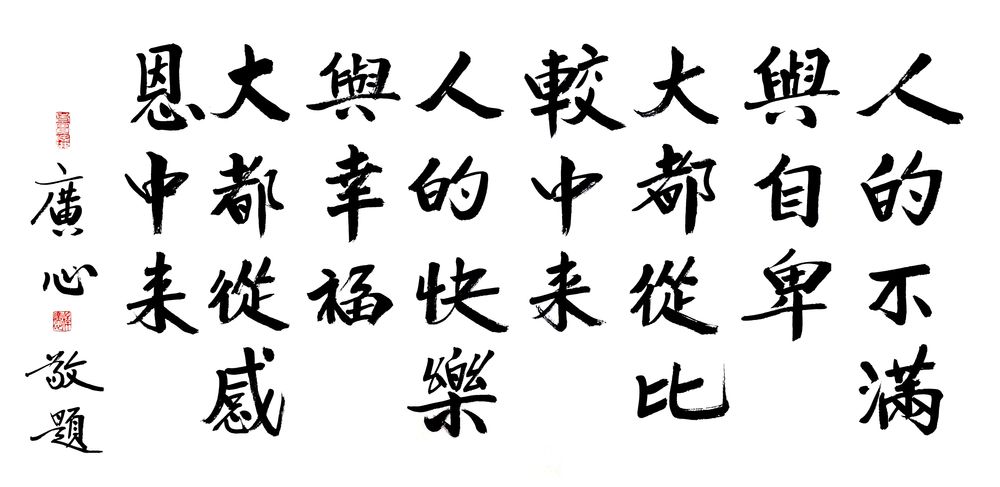 人的不滿
與自卑
大都從比
較中来
人的快樂
與幸福
大都從感
恩中来
廣心敬題